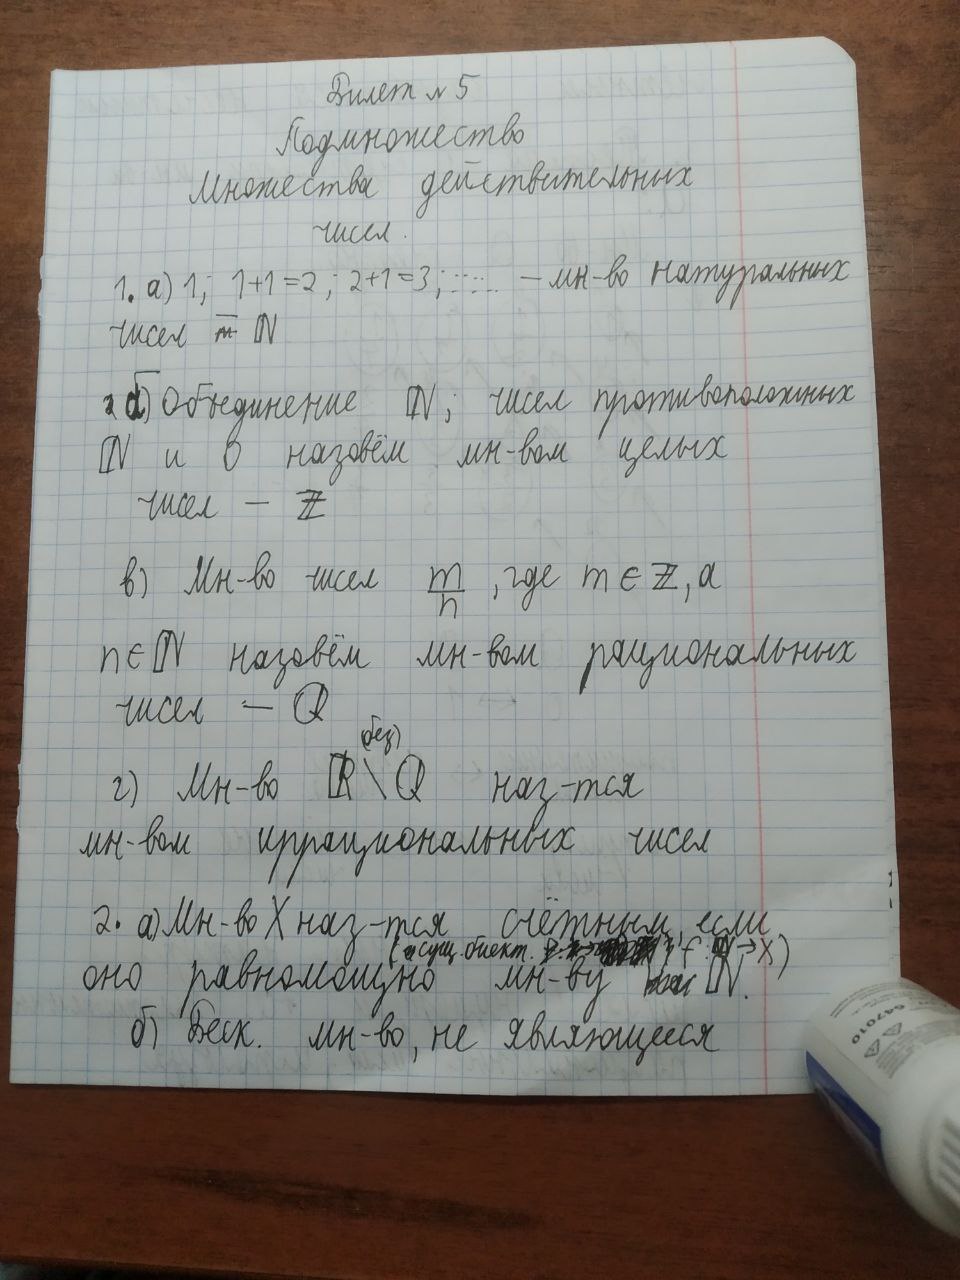 Билет № 5
Подмножество
Множества действительных
чисел.
1. а) 1; 1+1=2; 2+1=3; ..... – мн-во натуральных
чисел – ℕ
б) Объединение ℕ; чисел противоположных
ℕ и 0 назовём мн-вом целых
чисел – ℤ
в) Мн-во чисел m/n, где m ∈ ℤ, а
n ∈ ℕ назовём мн-вом рациональных
чисел – ℚ
(без)
г) Мн-во ℝ \ ℚ наз-тся
мн-вом иррациональных чисел
2. а) Мн-во X наз-тся счётным, если
(сущ. биект. f: ℕ → X)
оно равномощно мн-ву ℕ.
б) Беск. мн-во, не являющееся
647010